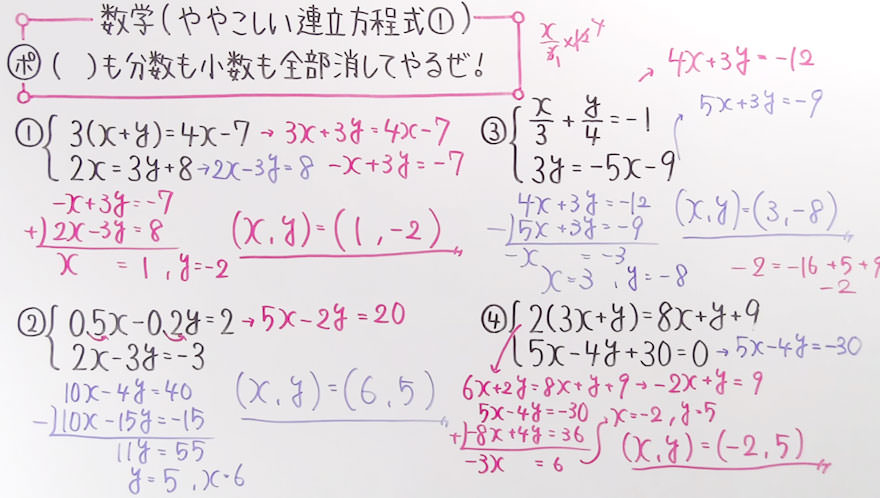 数学(ややこしい連立方程式①)
ポ ( )も分数も小数も全部消してやるぜ!
① 3(x+y)=4x-7 → 3x+3y=4x-7
2x=3y+8 → 2x-3y=8 -x+3y=-7
-x+3y=-7
+) 2x-3y=8
x =1, y=-2
(x,y)=(1,-2)
② 0.5x-0.2y=2 → 5x-2y=20
2x-3y=-3
10x-4y=40
-) 10x-15y=-15
11y=55
y=5, x=6
(x,y)=(6,5)
x/3 ×12 4
1
③ x/3 + y/4 = -1 → 4x+3y=-12
3y=-5x-9 5x+3y=-9
4x+3y=-12
-) 5x+3y=-9
-x =-3
x=3, y=-8
(x,y)=(3,-8)
-2=-16+5+9
-2
④ 2(3x+y)=8x+y+9
5x-4y+30=0 → 5x-4y=-30
6x+2y=8x+y+9 → -2x+y=9
5x-4y=-30
+) -8x+4y=36
-3x =6
x=-2, y=5
(x,y)=(-2,5)